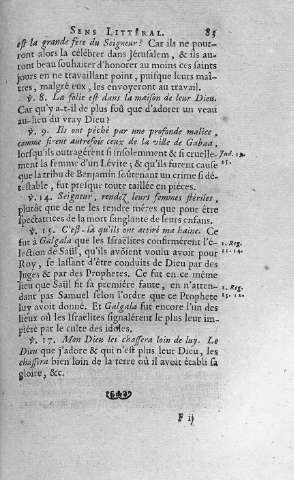 SENS LITTÉRAL. 85
est la grande fête du Seigneur? Car ils ne pour-
ront alors la célébrer dans Jérusalem, & ils au-
ront beau souhaiter d'honorer au moins ces saints
jours en ne travaillant point, puisque leurs maî-
tres, malgré eux, les envoyeront au travail.
℣. 8. La folie est dans la maison de leur Dieu.
Car qu'y a-t-il de plus foû que d'adorer un veau
au-lieu du vray Dieu?
℣. 9. Ils ont péché par une profonde malice,
comme firent autrefois ceux de la ville de Gabaa,
lorsqu'ils outragérent si insolemment & si cruelle- Jud. 19.
ment la femme d'un Lévite, & qu'ils furent cause 25.
que la tribu de Benjamin soûtenant un crime si dé-
testable, fut presque toute taillée en piéces.
℣. 14. Seigneur, rendez leurs femmes stériles,
plutôt que de ne les rendre méres que pour être
spectatrices de la mort sanglante de leurs enfans.
℣. 15. C'est-là qu'ils ont attiré ma haine. Ce
fut à Galgala que les Israëlites confirmérent l'é- 1. Reg.
lection de Saül, qu'ils avoient voulu avoir pour 11. 14.
Roy, se lassant d'être conduits de Dieu par des
Juges & par des Prophetes. Ce fut en ce même
lieu que Saül fit sa premiére faute, en n'atten-
dant pas Samuel selon l'ordre que ce Prophete 1. Reg.
luy avoit donné. Et Galgala fut encore l'un des 13. 12.
lieux où les Israëlites signalérent le plus leur im-
piété par le culte des idoles.
℣. 17. Mon Dieu les chassera loin de luy. Le
Dieu que j'adore & qui n'est plus leur Dieu, les
chassera bien loin de la terre où il avoit établi sa
gloire, &c.
F ij